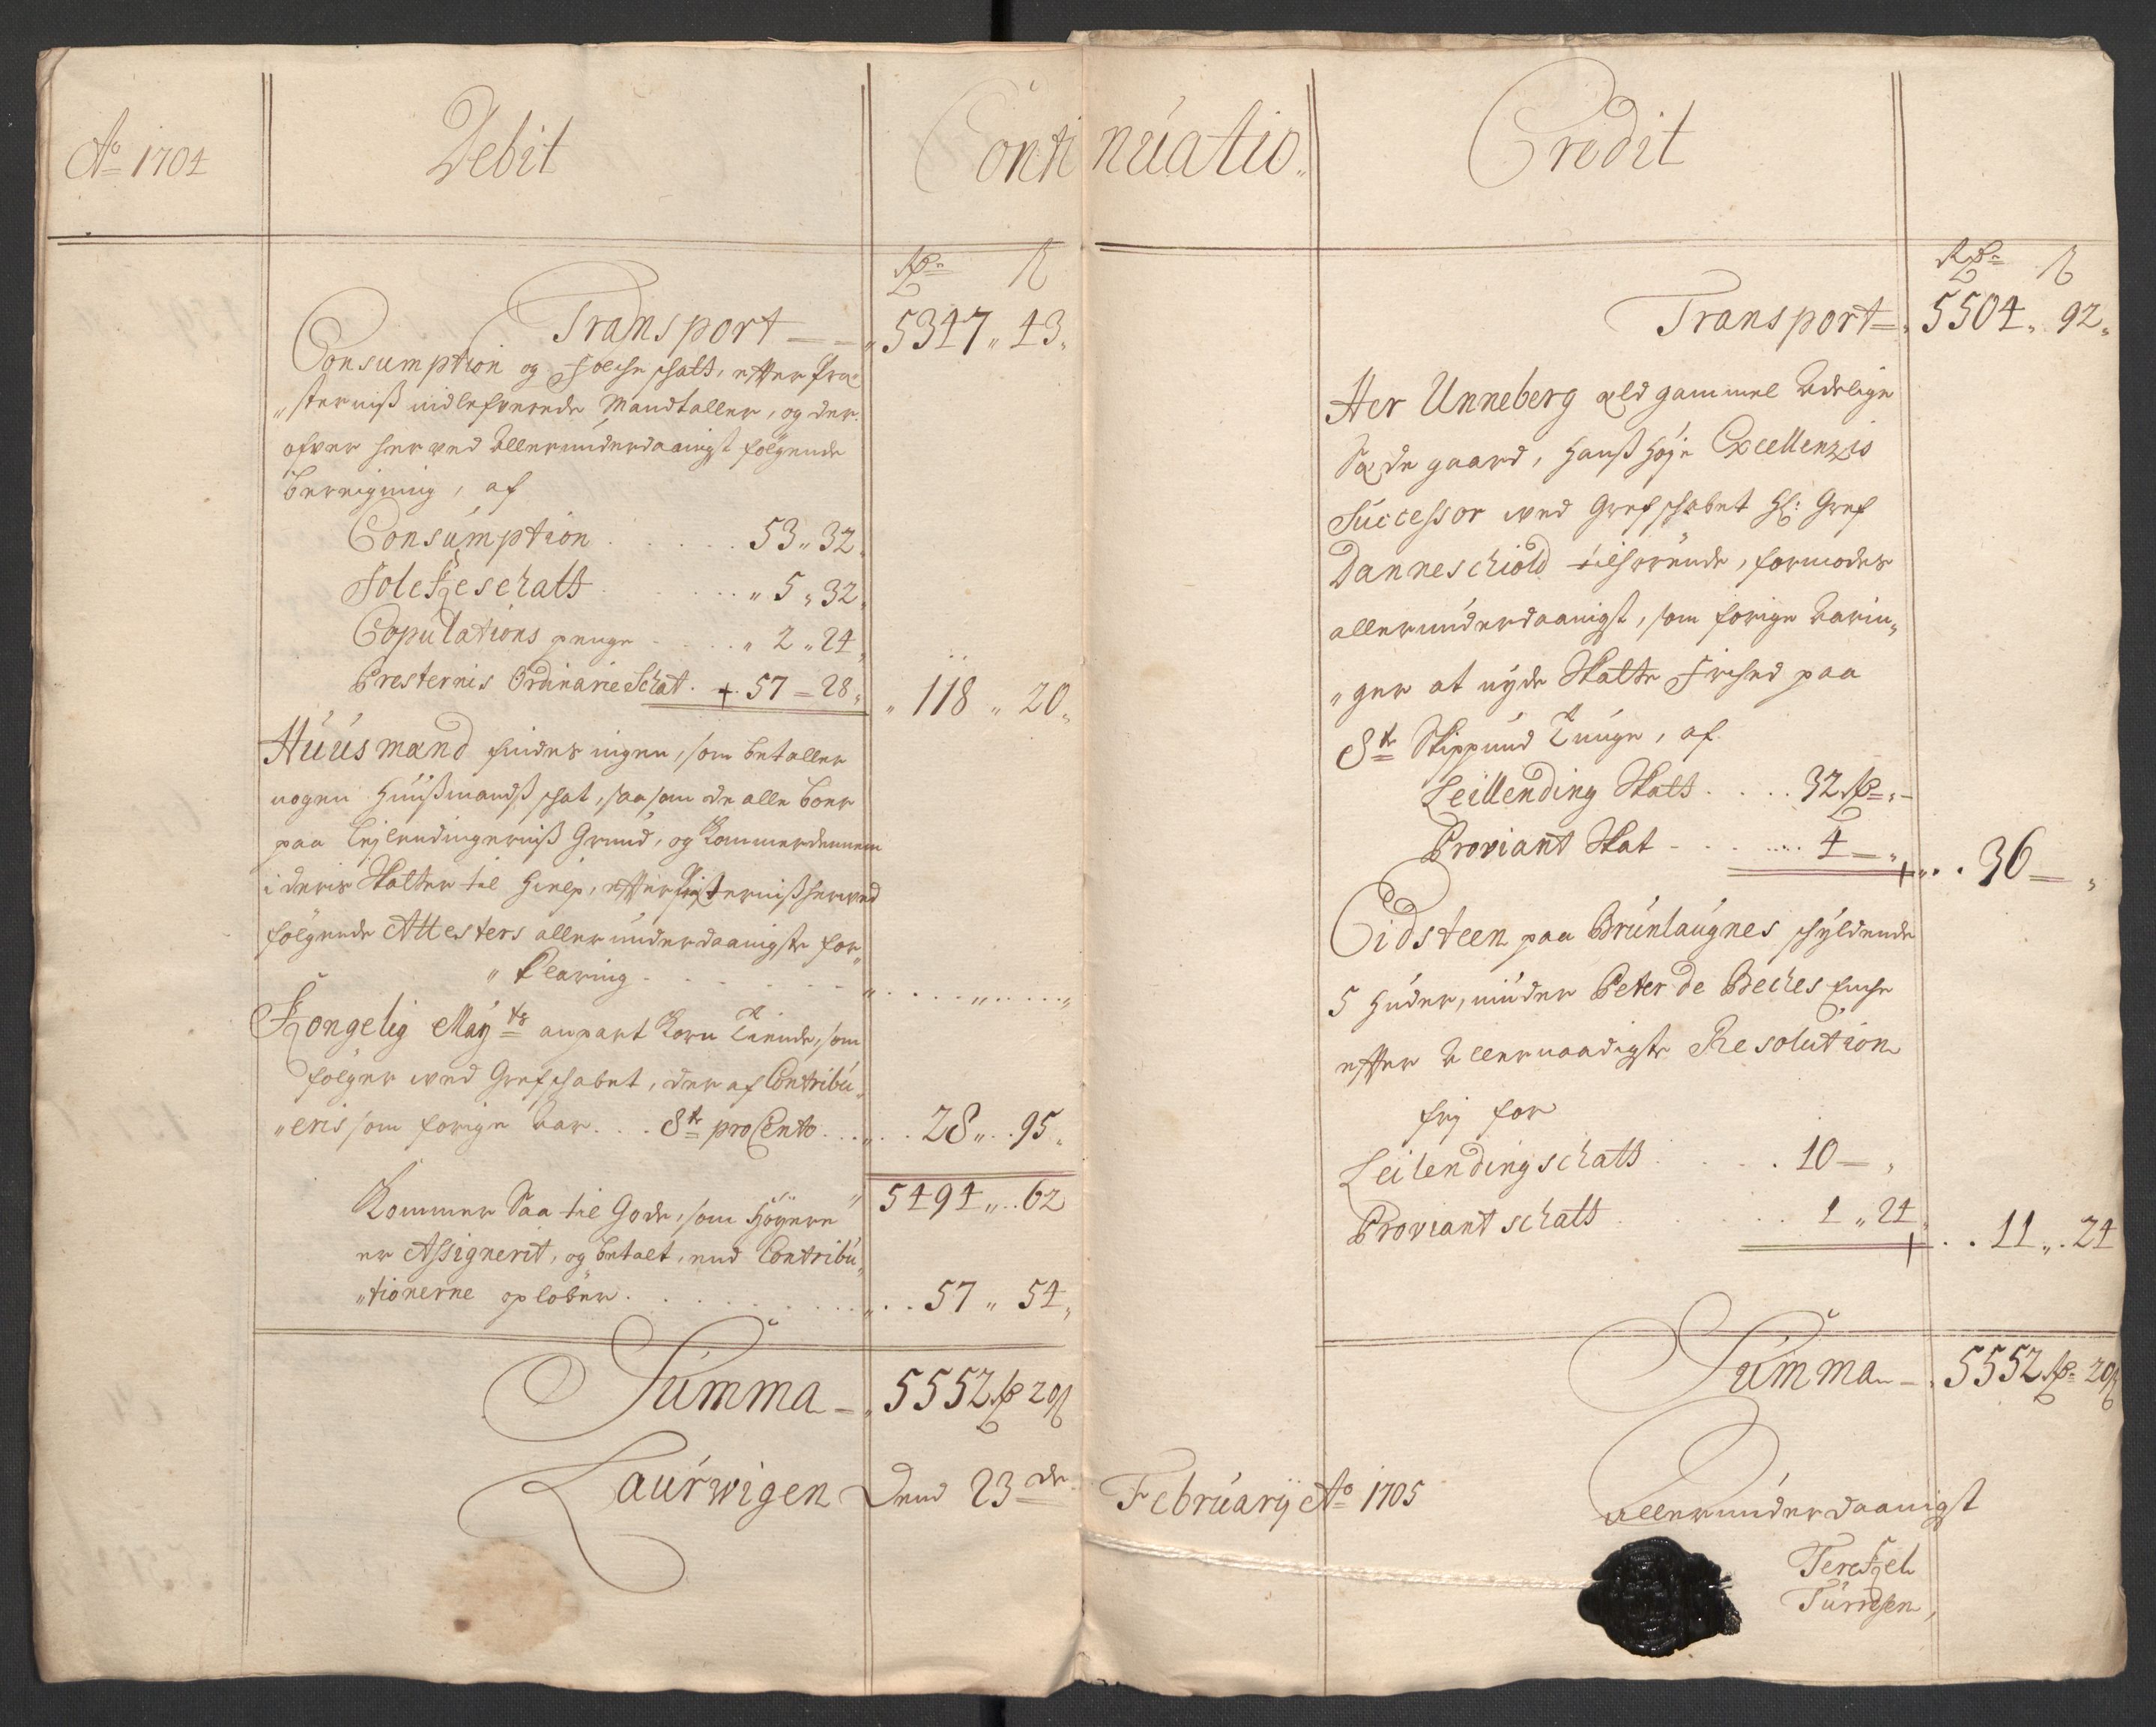 Ao 1704
Debit
Continuatio.
Rdr ß
Transport — 5347 „ 43
Consumption og Folcheschatt, effter Præ-
„sternis indlefverede Mandtaller, og der
ofver her ved allerunderdaanigst følgende
beregning, af
Consumption . . . 53 „ 32
Folckeschatt . . . „ 5 „ 32
Copulations penge . . . „ 2 „ 24
Presternis Ordinarie Schat . + 57 – 28 „ 118 „ 20
Huusmænd findes ingen, som betaller
nogen Huußmandß schat, saa som de alle boer
paa Leilendingerniß Grund, og kommer dennem
i deris Skatter til Hielp, effter Presterniß herved
følgende Attesters allerunderdaanigste for„
„klaring . . . „ . . . „ . . . „
Kongelig Maÿts anpart Korn Tiende, som
følger ved Grefschabet, der af Contribu„
„eris som forige Aar . . . 8te pro Cento . . . 28 „ 95
5494 „ 62
Kommer Saa til Gode, som Høyere
er Assignerit, og betalt, end Contribu„
„tionerne opløber . . . 57 „ 54
Summa – 5552 Rdr 20 ß
Laurwigen Dend 23de
Credit
Rdr ß
Transport – 5504 „ 92
Her Unneberg æld gammel Adelige
Sædegaard, Hanß Høje Excellenzis
Successor ved Grefschabet Hl: Gref
Danneschiold tilhørende, formodes
allerunderdaanigst, som forige Aarin„
„ger at nyde Skatte Frihed paa
8te Skippund Tunge, af
Leillending Skatt . . . . 32 Rdr „ –
Proviant Skat . . . 4 – „ + . . 36 –
Eidsteen paa Brunlaugnes schyldende
5 Huder, under Peter de Beches Enche
effter Allernaadigste Resolution
frj for
Leilendingschatt . . . 10 –
Proviantschatt . . . 1 „ 24 + . . 11 „ 24
Summa – 5552 Rdr 20 ß
Februarij Ao 1705
Allerunderdaanigst
Terchel
Turesen